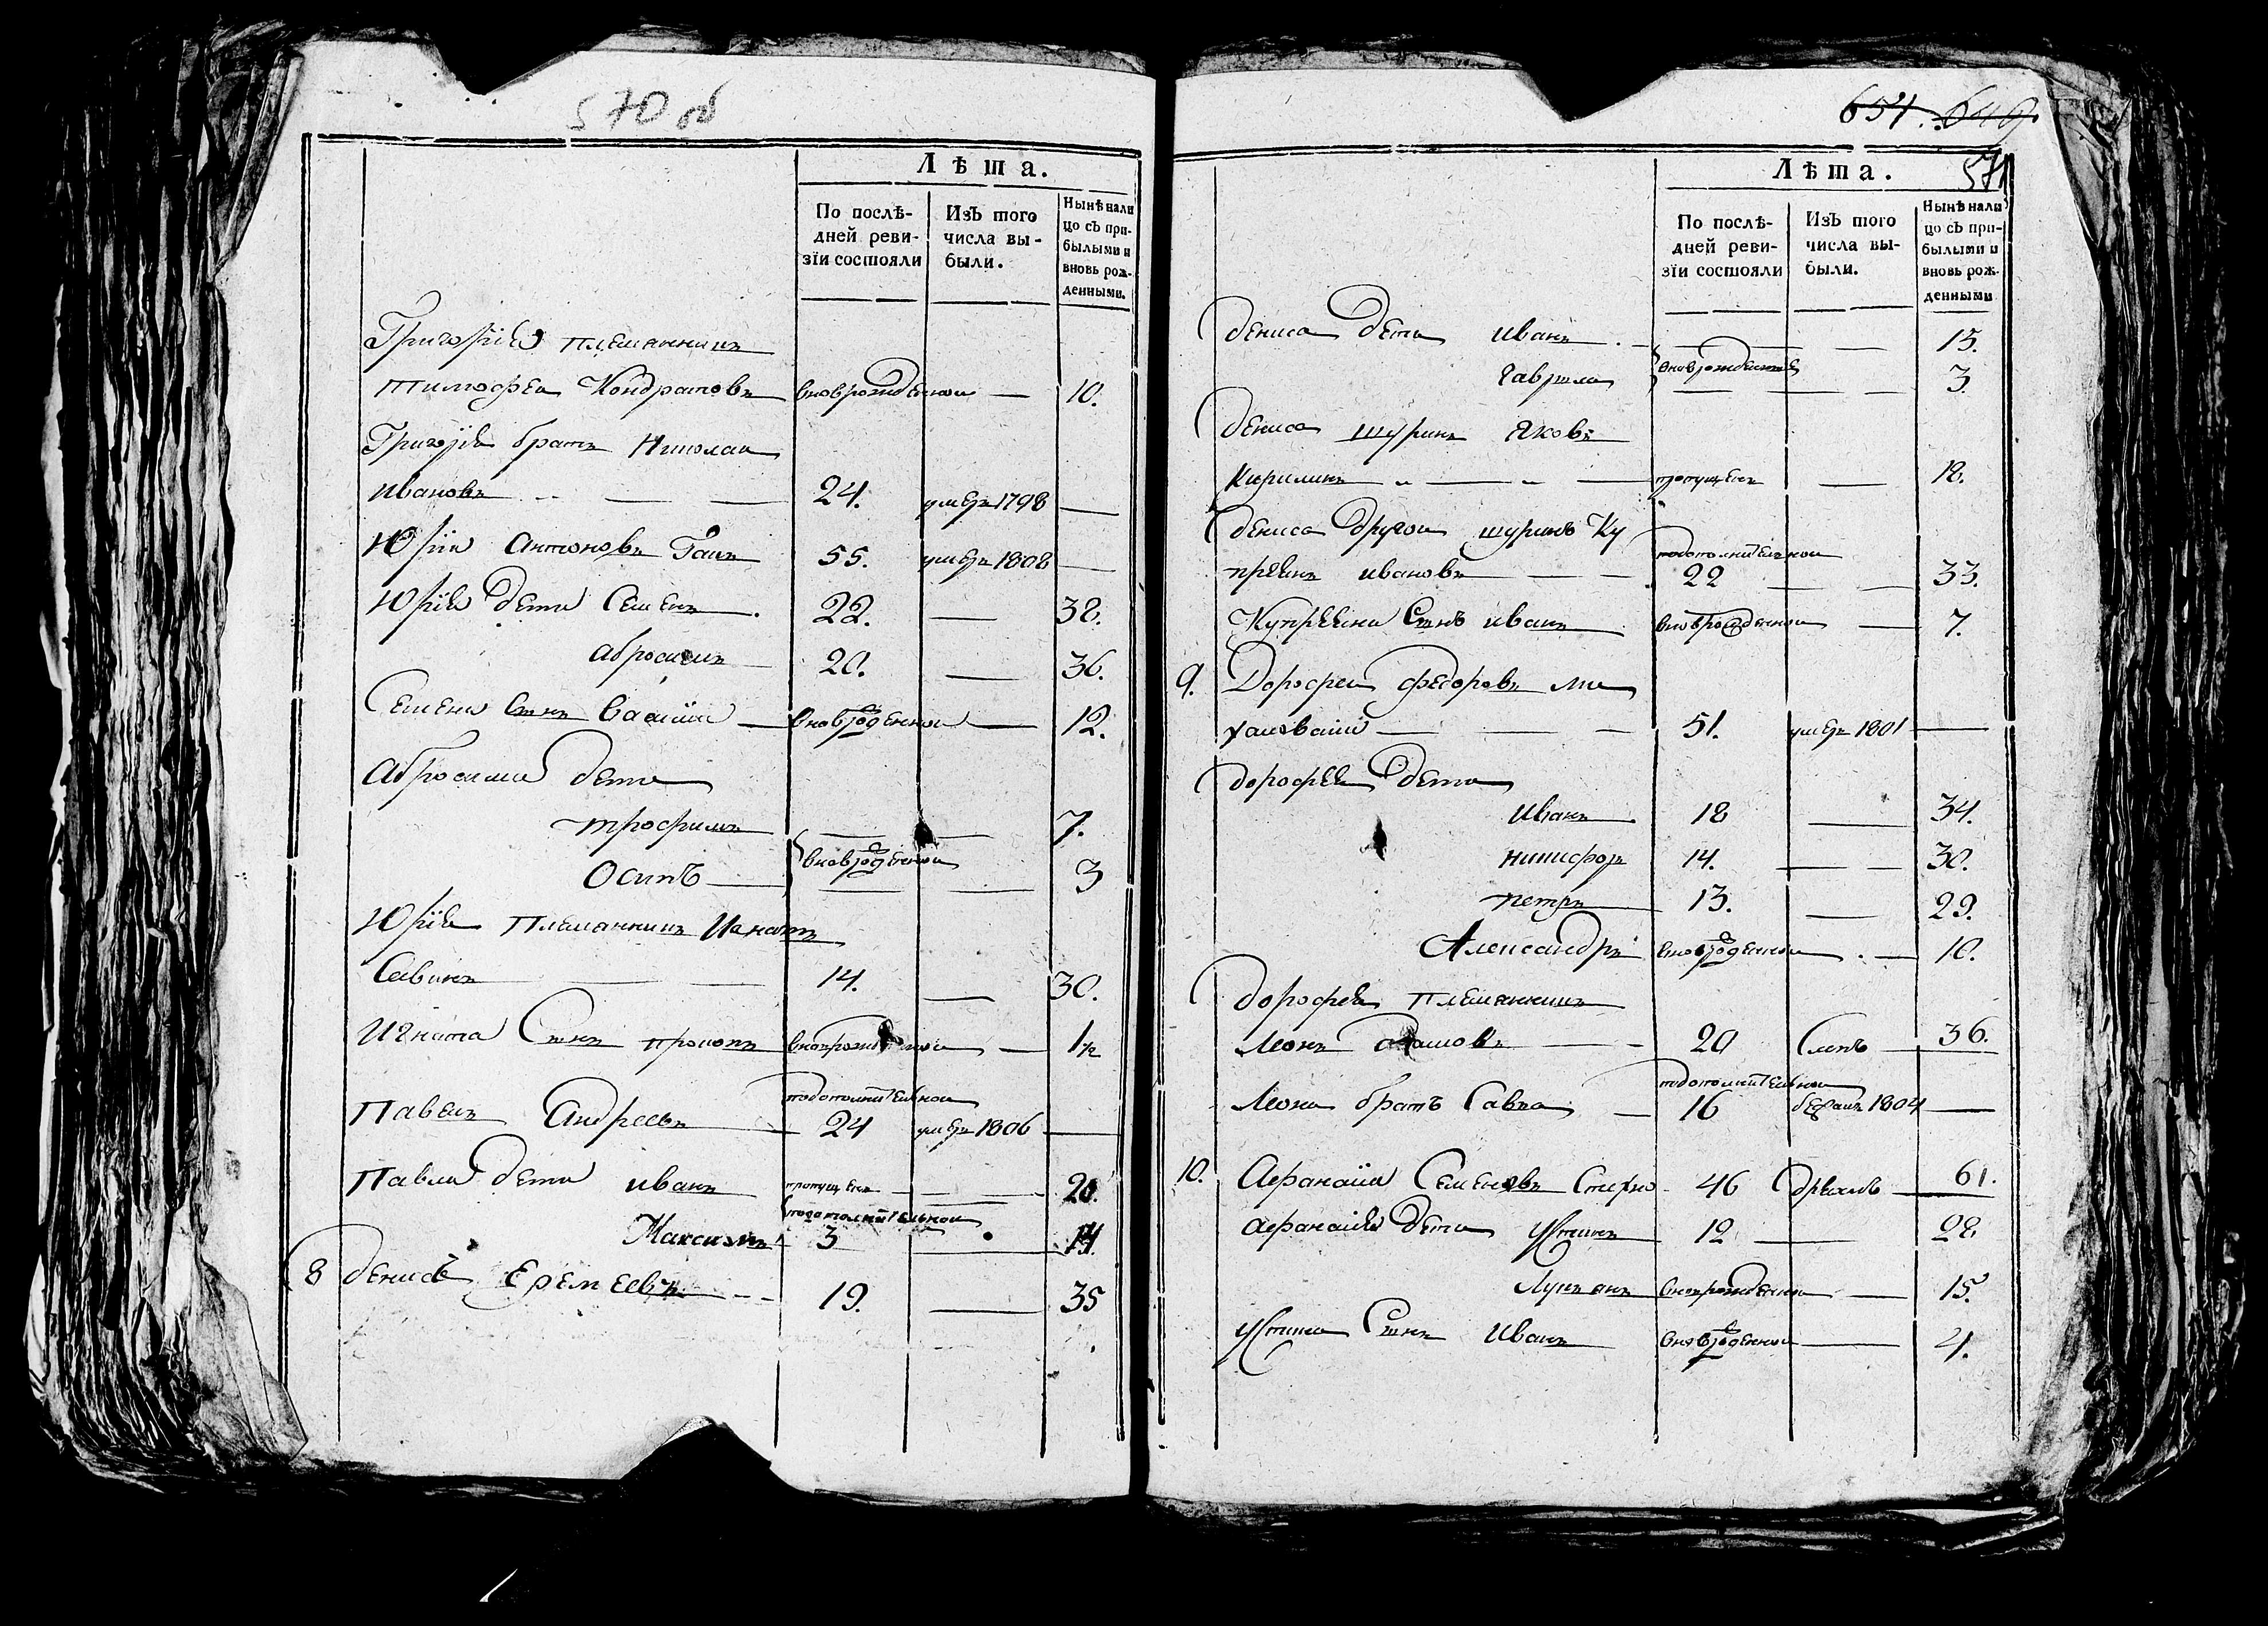 570 об
Лѣта.
По послѣ-
дней реви-
зїи состояли
Изъ того
числа вы-
были.
Нынѣ нали
цо съ при-
былыми и
вновь рож-
денными.
Григорiя племянникъ
тимофеи Кондратовъ вновьрожденнои — 10.
Григорiя братъ Николаи
ивановъ — 24. умеръ 1798 —
Юрiи Антоновъ 55. умеръ 1808 —
Юрiя дети Семенъ 22. — 38.
абросимъ 20. — 36.
Семена сынъ васили вновьрожденнои — 12.
абросима дети
трофимъ — — 7.
Осипъ вновьрожденнои — 3
Юрiя племянникъ Игнатъ
Савинъ — 14. — 30.
Игната Сынъ прокопъ вновьрожденнои — 1 1/2
Павелъ Андреевъ подополнительнои 24 умеръ 1806 —
Павла дети иванъ пропущенъ — 20.
Максимъ подополнительнои 3 — 19.
8 денисъ Еремеевъ 19. — 35
654. 649.
571
Лѣта.
По послѣ-
дней реви-
зїи состояли
Изъ того
числа вы-
были.
Нынѣ нали
цо съ при-
былыми и
вновь рож-
денными
дениса дети иванъ — — 15.
гаврила вновьрожденные — 3.
дениса шуринъ яковъ
кирилинъ — пропущенъ — 18.
дениса другои шуринъ Ку
преянъ ивановъ подополнительнои 22 — 33.
Купреяна Сынъ иванъ вновьрожденнои — 7.
9. Дорофеи федоровъ ми
хаиоваши — 51. умеръ 1801 —
дорофея дети
Иванъ 18 — 34.
никифоръ 14. — 30.
петръ 13. — 29.
Александръ вновьрожденнои — 10.
дорофея племянникъ
Леонъ 20 Слепъ 36.
Леона братъ Савка подополнительнои 16 бежалъ 1804 —
10. Афанасiи Семеновъ 46 дряхлъ 61.
афанасiя дети устинъ 12 — 28
Лукианъ вновьрожденнои — 15.
устина Сынъ Иванъ вновьрожденнои — 4.